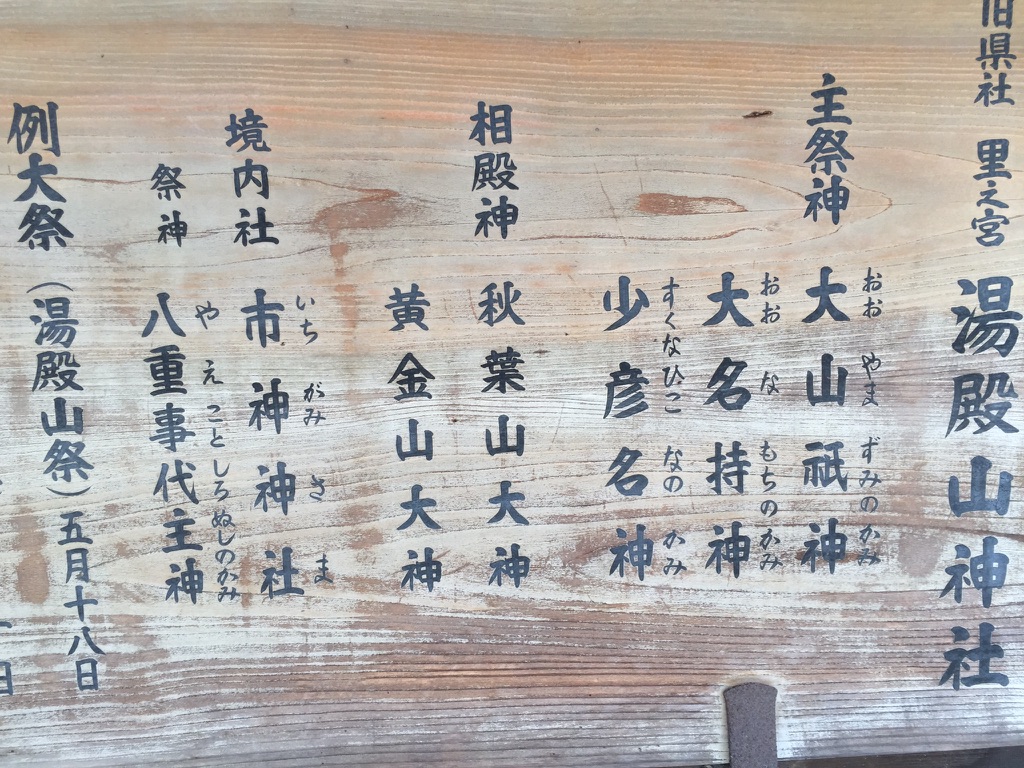 旧県社 里之宮 湯殿山神社
主祭神
おお やま ずみのかみ
大山祇神
おお な もちのかみ
大名持神
すくなひこ なの かみ
少彦名神
相殿神
秋葉山大神
黄金山大神
境内社
いち がみ さ ま
市神神社
祭神
や え ことしろぬしのかみ
八重事代主神
例大祭 (湯殿山祭) 五月十八日
日